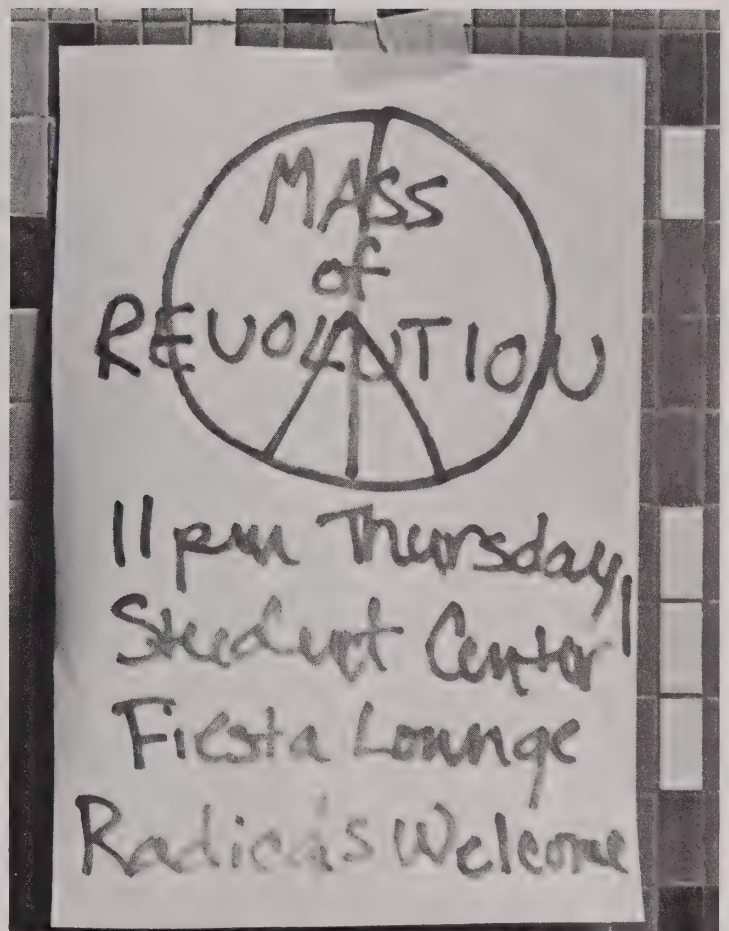 MASS
of
REVOLUTION
11 pm Thursday,
Student Center
Fiesta Lounge
Radicals Welcome